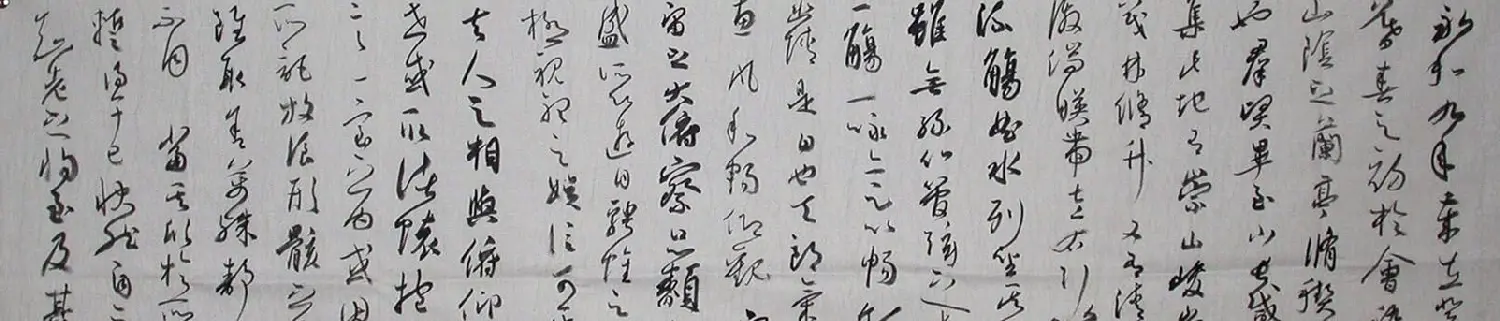 永和九年歲在癸
暮春之初於會稽
山陰之蘭亭脩禊
也羣賢畢至少長咸
集此地有崇山峻
茂林脩竹又有清
激湍暎帶左右引
流觴曲水列坐其
雖無絲竹管弦之
一觴一詠亦足以暢
幽情是日也天朗氣
惠風和暢仰觀
宙之大俯察品類
盛所以遊目騁懷足
極視聽之娛信可
夫人之相與俯仰
世或取諸懷抱
言一室之內或因
所託放浪形骸之
雖取舍萬殊靜
不同當其欣於所
暫得於己快然自足
知老之將至及其